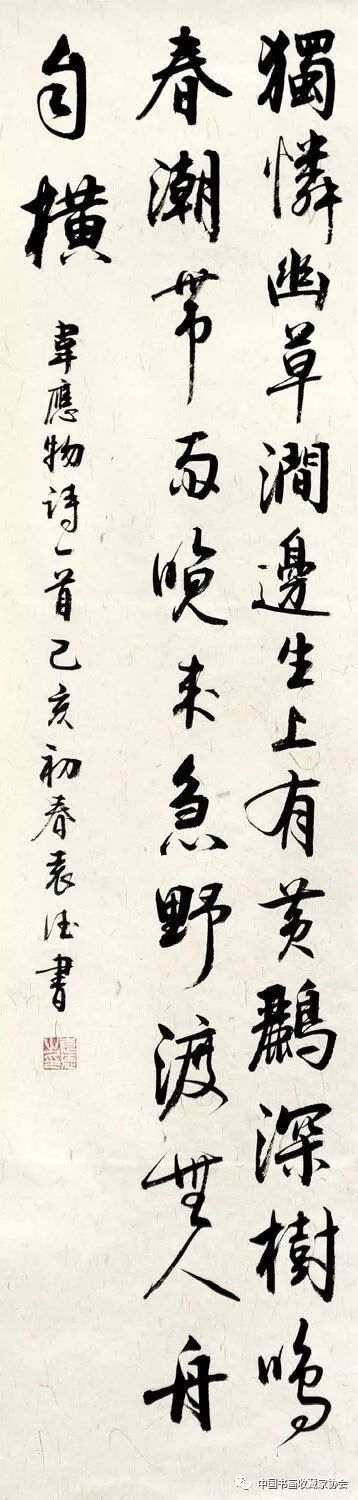 獨憐幽草澗邊生上有黄鸝深樹鳴
春潮帶雨晚來急野渡無人舟
自橫
韋應物詩一首己亥初春袁德書
中国书画收藏家协会